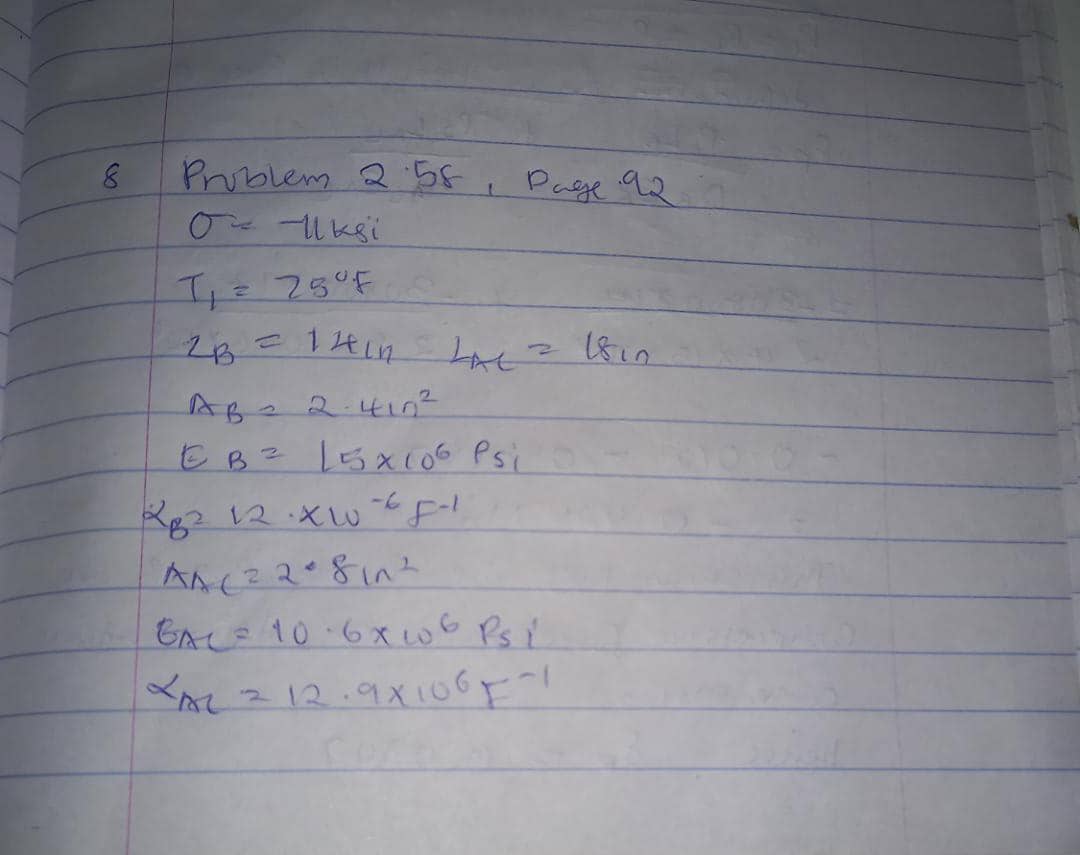 8 Problem 2.58, Page 92
σ = -11 ksi
T₁ = 75°F
LB = 14in LAC = 18in
AB = 2.4in²
EB = 15x10⁶ Psi
αB = 12.x10⁻⁶ F⁻¹
AAC = 2.8in²
EAC = 10.6x10⁶ Psi
αAC = 12.9x10⁶F⁻¹